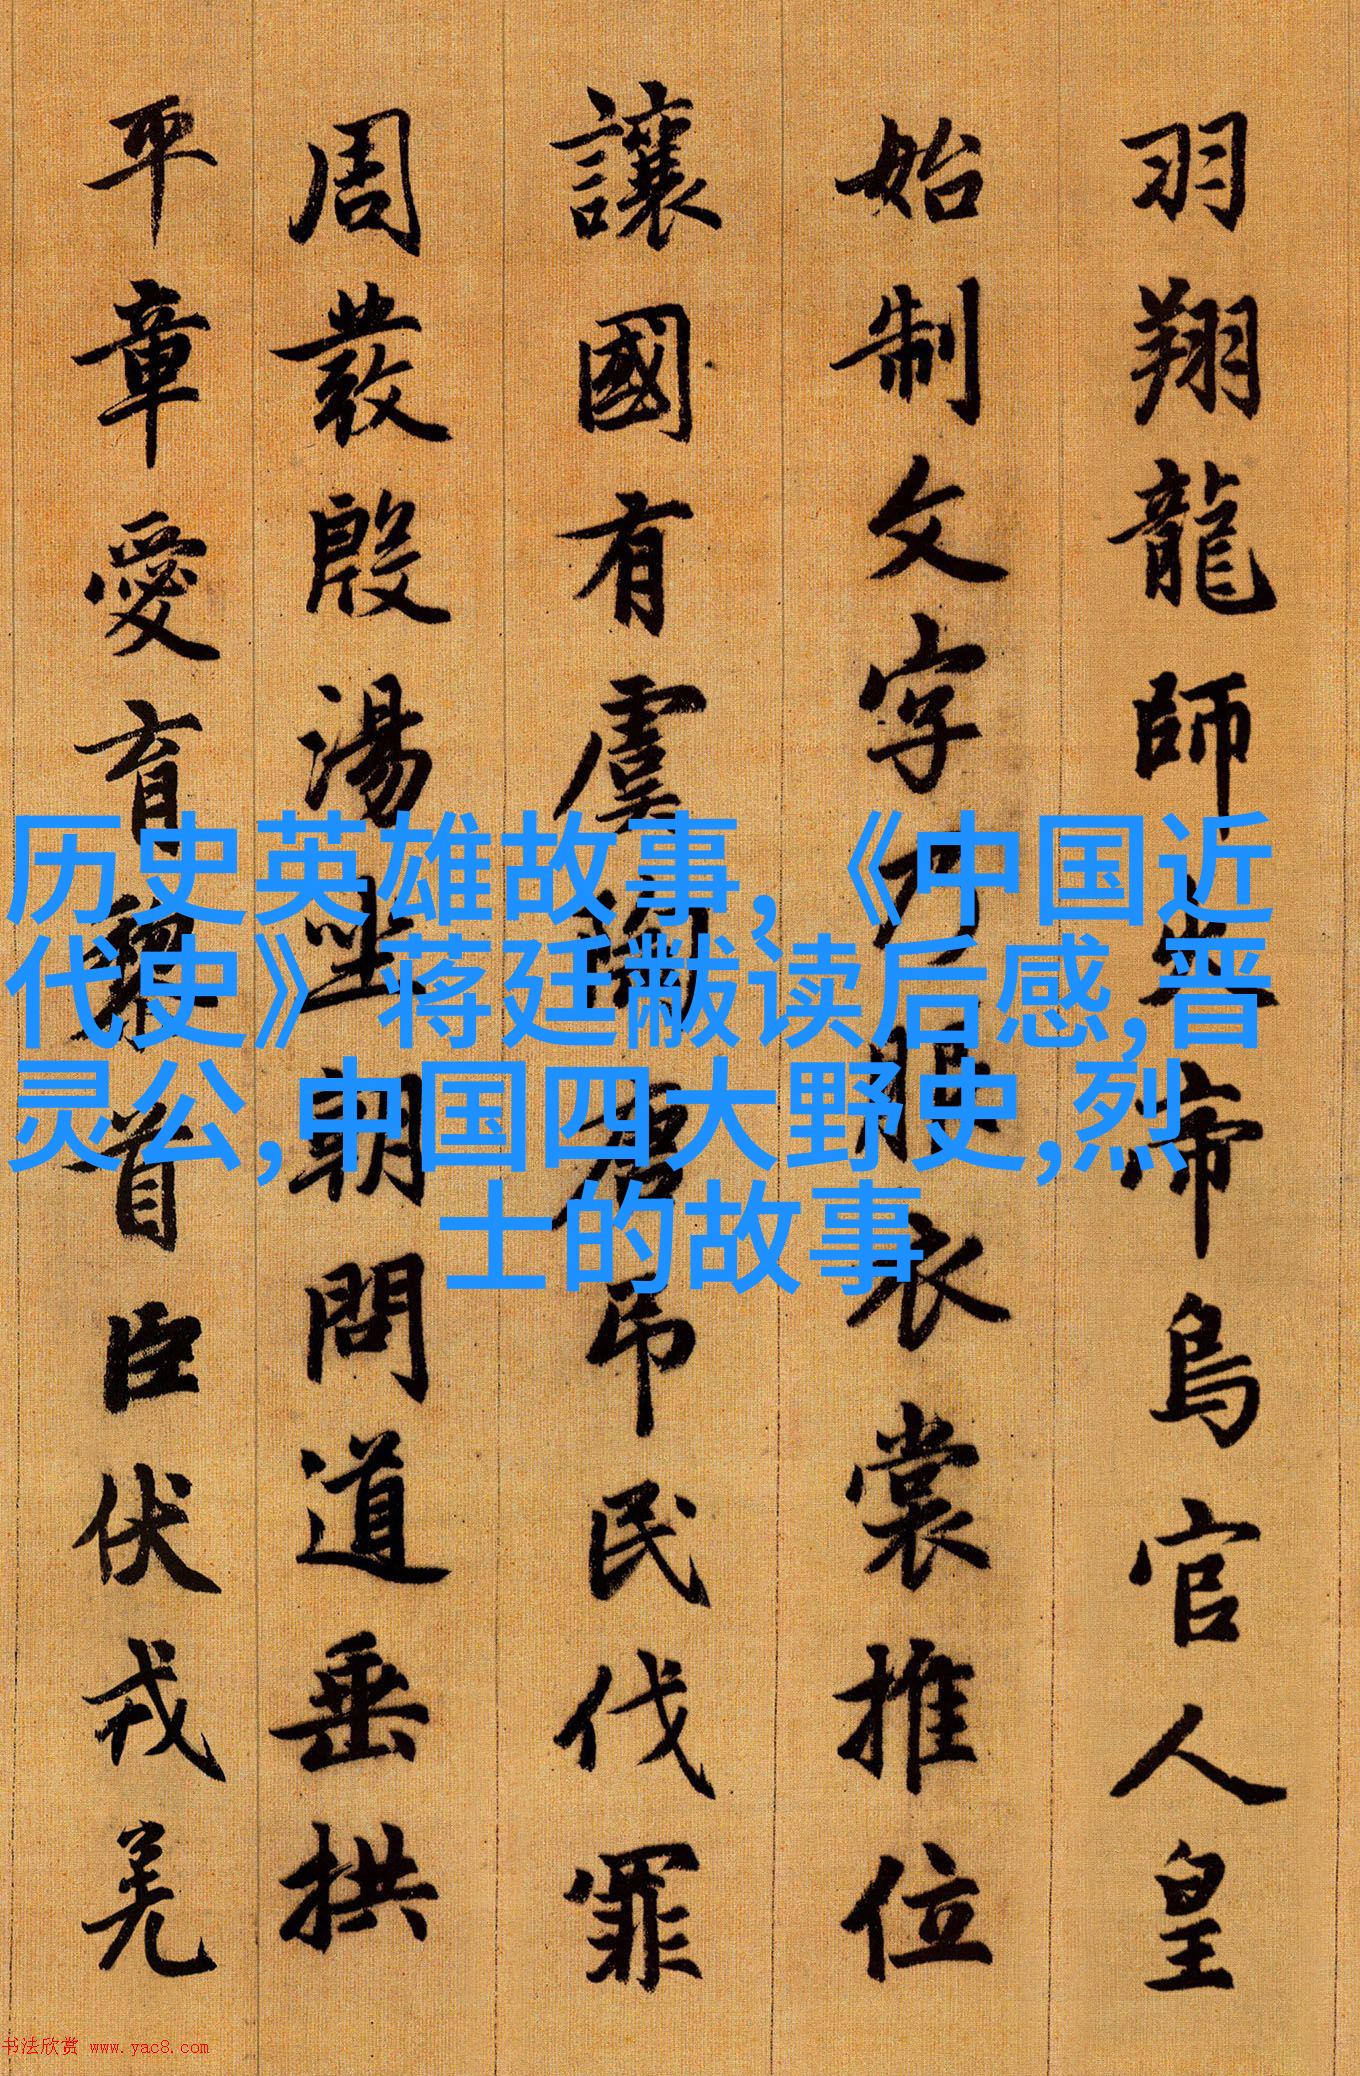 羽翔龍師火帝鳥官人皇
始制文字乃服衣裳推位
讓國有虞陶唐吊民伐罪
周發殷湯坐朝問道垂拱
平章愛育黎首臣伏戎羌
历史英雄故事,《中国近
代史》蒋廷黻读后感,晋
灵公,中国四大野史,烈
士的故事
书法欣赏 www.yac8.com